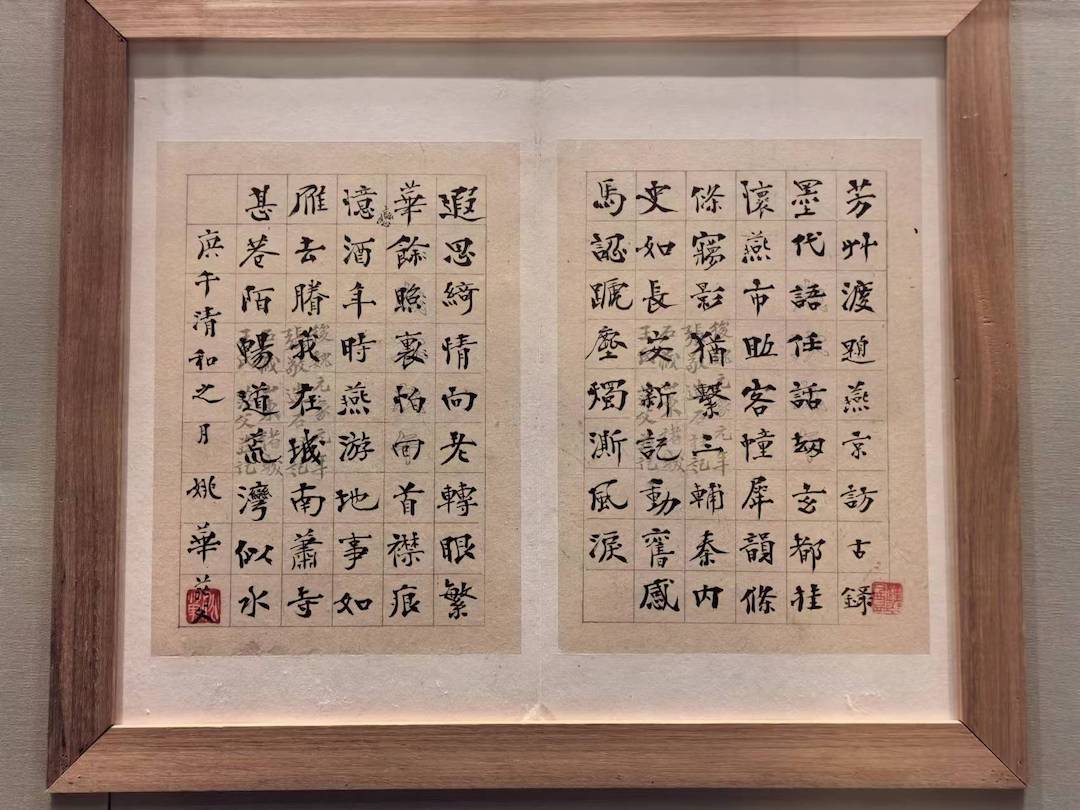 芳艸渡題燕京訪古錄
墨代語任話劫玄都挂
懷燕市客幢犀韻條
條寤影猶繫三輔秦內
史如長安新記動舊感
馬認蹏塵燭澌風淚
遐思綺情向老轉眼繁
華餘照裏怕回首襟痕
憶酒年時燕游地事如
雁去賸我在城南蕭寺
甚巷陌暢道荒灣似水
庚午清和之月姚華